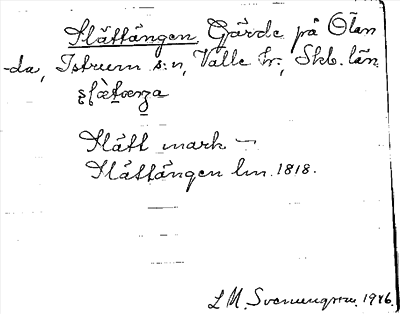 Slättängen Gärde på Ölan
-da, Istrum s:n, Valle hr., Skb. län
Slätt mark –
Slättängen lm. 1818.
L M. Svenungsson. 1946.